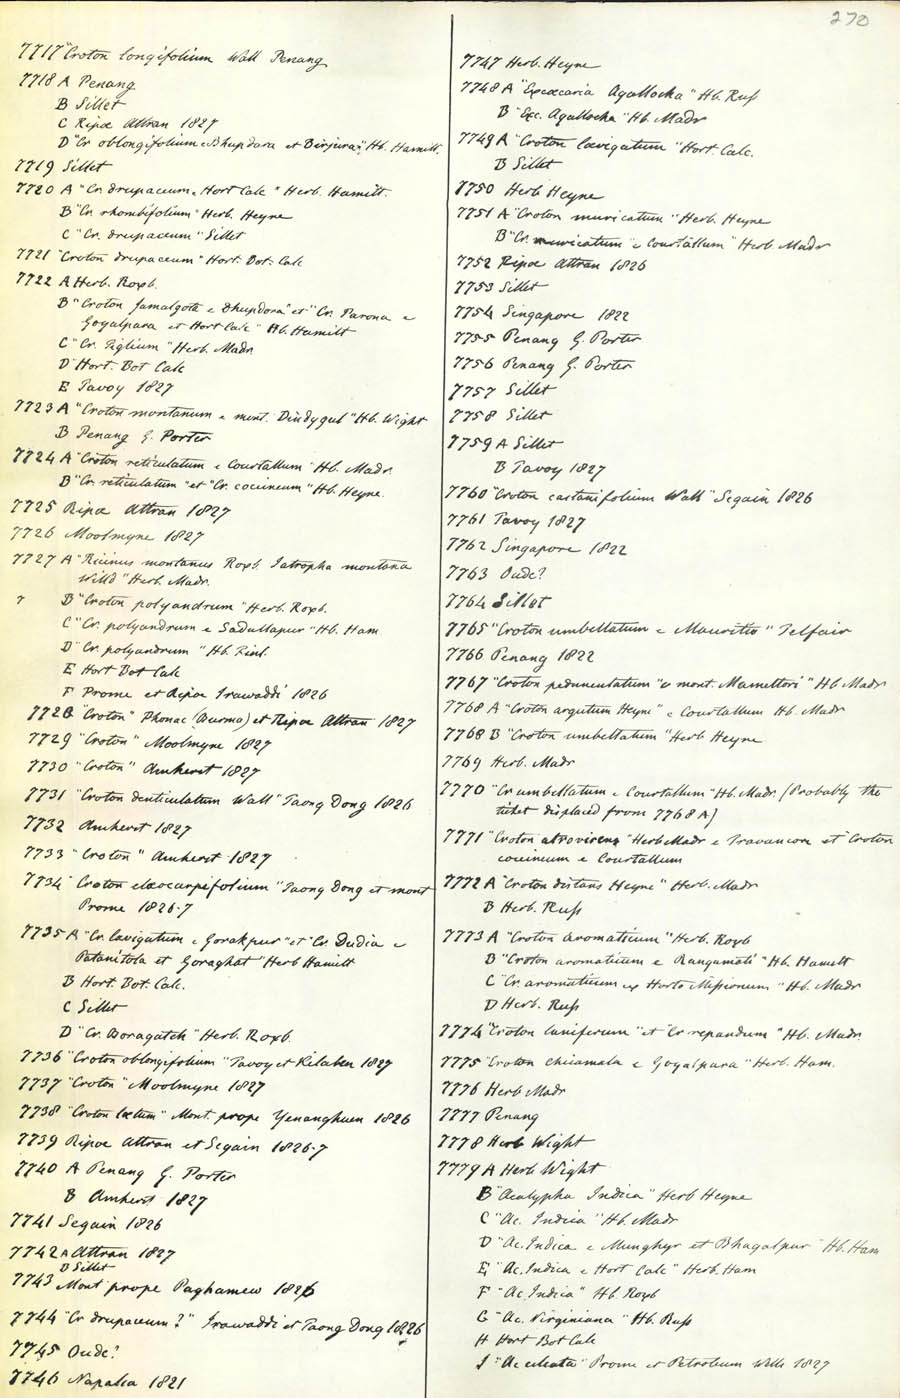 270
7717 "Croton longifolium Wall Penang
7718 A Penang
B Sillet
C Ripæ Attran 1827
D "Cr oblongifolium e Bhupdara et Birjura" Hb. Hamilt.
7719 Sillet
7720 A "Cr. drupaceum e Hort Calc" Herb. Hamilt.
B "Cr. rhombifolium" Herb. Heyne
C "Cr. drupaceum" Sillet
7721 "Croton drupaceum" Hort. Bot. Calc
7722 A Herb. Roxb.
B "Croton Jamalgota e Bhupdora" et "Cr. Parona e
Goyalpara et Hort Calc" Hb. Hamilt
C "Cr. Tiglium" Herb. Madr.
D Hort. Bot Calc
E Tavoy 1827
7723 A "Croton montanum e mont. Dindygul" Hb. Wight
B Penang G. Porter
7724 A "Croton reticulatum e Courtallum" Hb. Madr.
B "Cr. reticulatum" et "Cr. coccineum" Hb. Heyne.
7725 Ripæ Attran 1827
7726 Moolmyne 1827
7727 A "Ricinus montanus Roxb. Jatropha montana
Willd" Herb. Madr.
B "Croton polyandrum" Herb. Roxb.
C "Cr. polyandrum e Sadullapur" Hb. Ham
D "Cr. polyandrum" Hb. Finl.
E Hort Bot Calc
F Prome et Ripæ Irawaddi 1826
7728 "Croton" Phonac (Burma) et Ripæ Attran 1827
7729 "Croton" Moolmyne 1827
7730 "Croton" Amherst 1827
7731 "Croton denticulatum Wall" Taong Dong 1826
7732 Amherst 1827
7733 "Croton" Amherst 1827
7734 "Croton elæocarpifolium" Taong Dong et mont
Prome 1826-7
7735 A "Cr. lævigatum e Gorakpur" et "Cr. Dudia e
Patanitola et Goraghat" Herb Hamilt
B Hort. Bot. Calc.
C Sillet
D "Cr. Boragatch" Herb. Roxb.
7736 "Croton oblongifolium" Tavoy et Kilaben 1827
7737 "Croton" Moolmyne 1827
7738 "Croton lætum" Mont. prope Yenanghuen 1826
7739 Ripæ Attran et Segain 1826-7
7740 A Penang G. Porter
B Amherst 1827
7741 Segain 1826
7742 A Attran 1827
B Sillet
7743 Mont prope Paghamew 1826
7744 "Cr drupaceum?" Irawaddi et Taong Dong 1826
7745 Oude?
7746 Napalia 1821
7747 Herb. Heyne
7748 A "Excæcaria Agallocha" Hb. Russ
B "Exc. Agallocha" Hb. Madr
7749 A "Croton lævigatum" Hort. Calc.
B Sillet
7750 Herb Heyne
7751 A "Croton muricatum" Herb. Heyne
B "Cr. muricatum" e Courtallum" Herb. Madr
7752 Ripæ Attran 1826
7753 Sillet
7754 Singapore 1822
7755 Penang G. Porter
7756 Penang G. Porter
7757 Sillet
7758 Sillet
7759 A Sillet
B Tavoy 1827
7760 "Croton castanifolium Wall" Segain 1826
7761 Tavoy 1827
7762 Singapore 1822
7763 Oude?
7764 Sillet
7765 "Croton umbellatum e Mauritio" Telfair
7766 Penang 1822
7767 "Croton pedunculatum" e mont. Mamettori" Hb Madr
7768 A "Croton argutum Heyne" e Courtallum Hb. Madr
7768 B "Croton umbellatum" Herb Heyne
7769 Herb. Madr
7770 "Cr umbellatum e Courtallum" Hb. Madr. (Probably the
ticket displaced from 7768 A)
7771 "Croton atrovirens" Herb Madr e Travancore et "Croton
coccineum e Courtallum
7772 A "Croton distans Heyne" Herb. Madr
B Herb. Russ
7773 A "Croton aromaticum" Herb. Roxb
B "Croton aromaticum e Rangamati" Hb. Hamilt
C "Cr. aromaticum ex Horto Missionum" Hb. Madr
D Herb. Russ
7774 "Croton lucciferum" et "Cr repandum" Hb. Madr.
7775 "Croton chiiamala e Goyalpara" Herb. Ham.
7776 Herb Madr
7777 Penang
7778 Herb Wight
7779 A Herb Wight
B "Acalypha Indica" Herb Heyne
C "Ac. Indica" Hb. Madr
D "Ac. Indica e Munghyr et Bhagalpur" Hb. Ham
E "Ac. Indica e Hort Calc" Herb. Ham
F "Ac. Indica" Hb Roxb
G "Ac. Virginiana" Hb. Russ
H Hort Bot Calc
I "Ac ciliata" Prome et Petroleum Wells 1827